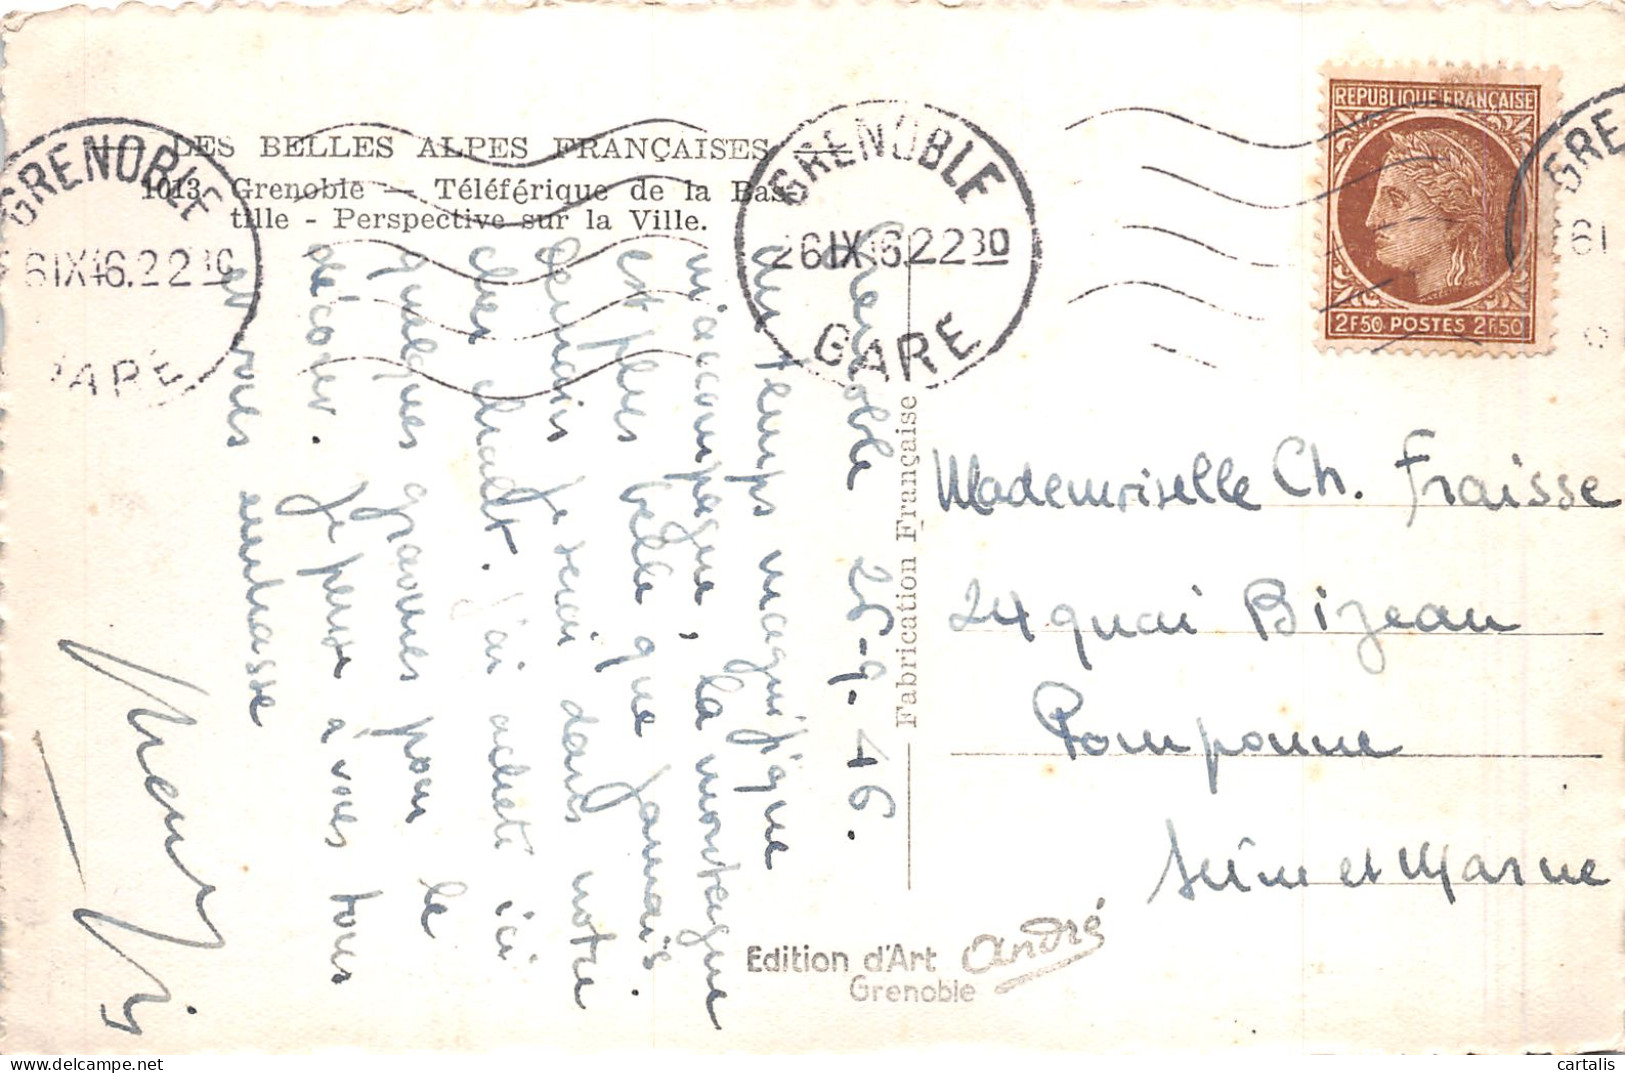 LES BELLES ALPES FRANÇAISES
1013 Grenoble — Téléférique de la Bas-
tille - Perspective sur la Ville.
GRENOBLE
26 IX 46.22 30
GARE
GRENOBLE
6 IX 46.22 30
GARE
GRE
61
REPUBLIQUE FRANÇAISE
2F50 POSTES 2F50
Grenoble 25-9-46.
un temps magnifique
m'accompagne, la montagne
est plus belle que jamais.
Demain je serai dans notre
cher chalet. J'ai acheté ici
quelques gravures pour le
décorer. Je pense à vous tous
et vous embrasse
Fabrication Française
Mademoiselle Ch. Fraisse
24 quai Bizeau
Pomponne
Seine et Marne
Edition d'Art André
Grenoble
cartalis